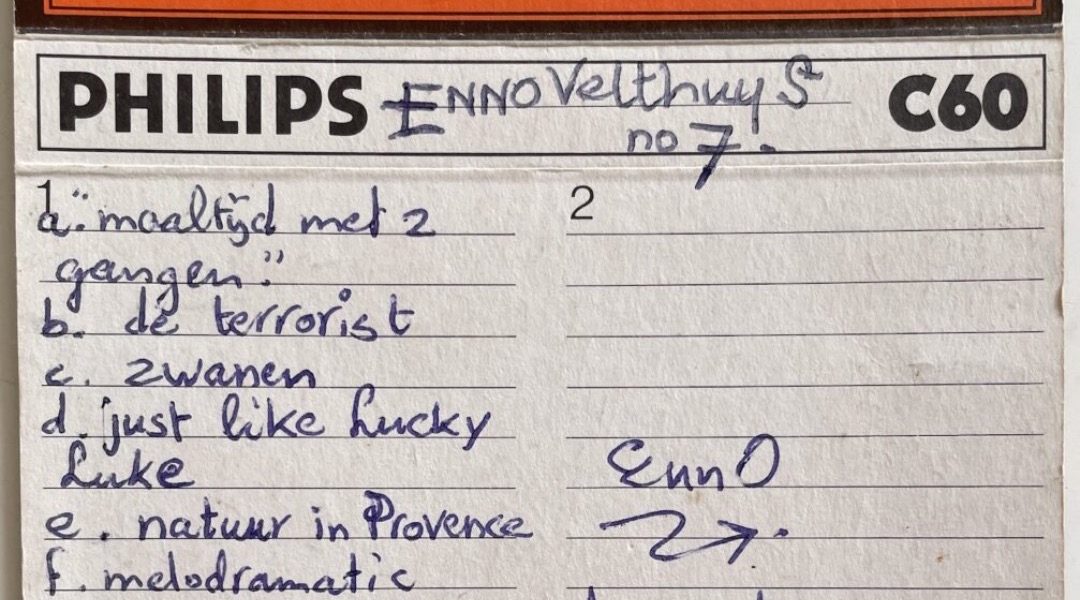 PHILIPS ENNO Velthuys C60
no 7.
1 2
a. "maaltijd met 2
gangen."
b. de terrorist
c. zwanen
d. just like Lucky
Luke
e. natuur in Provence
f. melodramatic
Enno